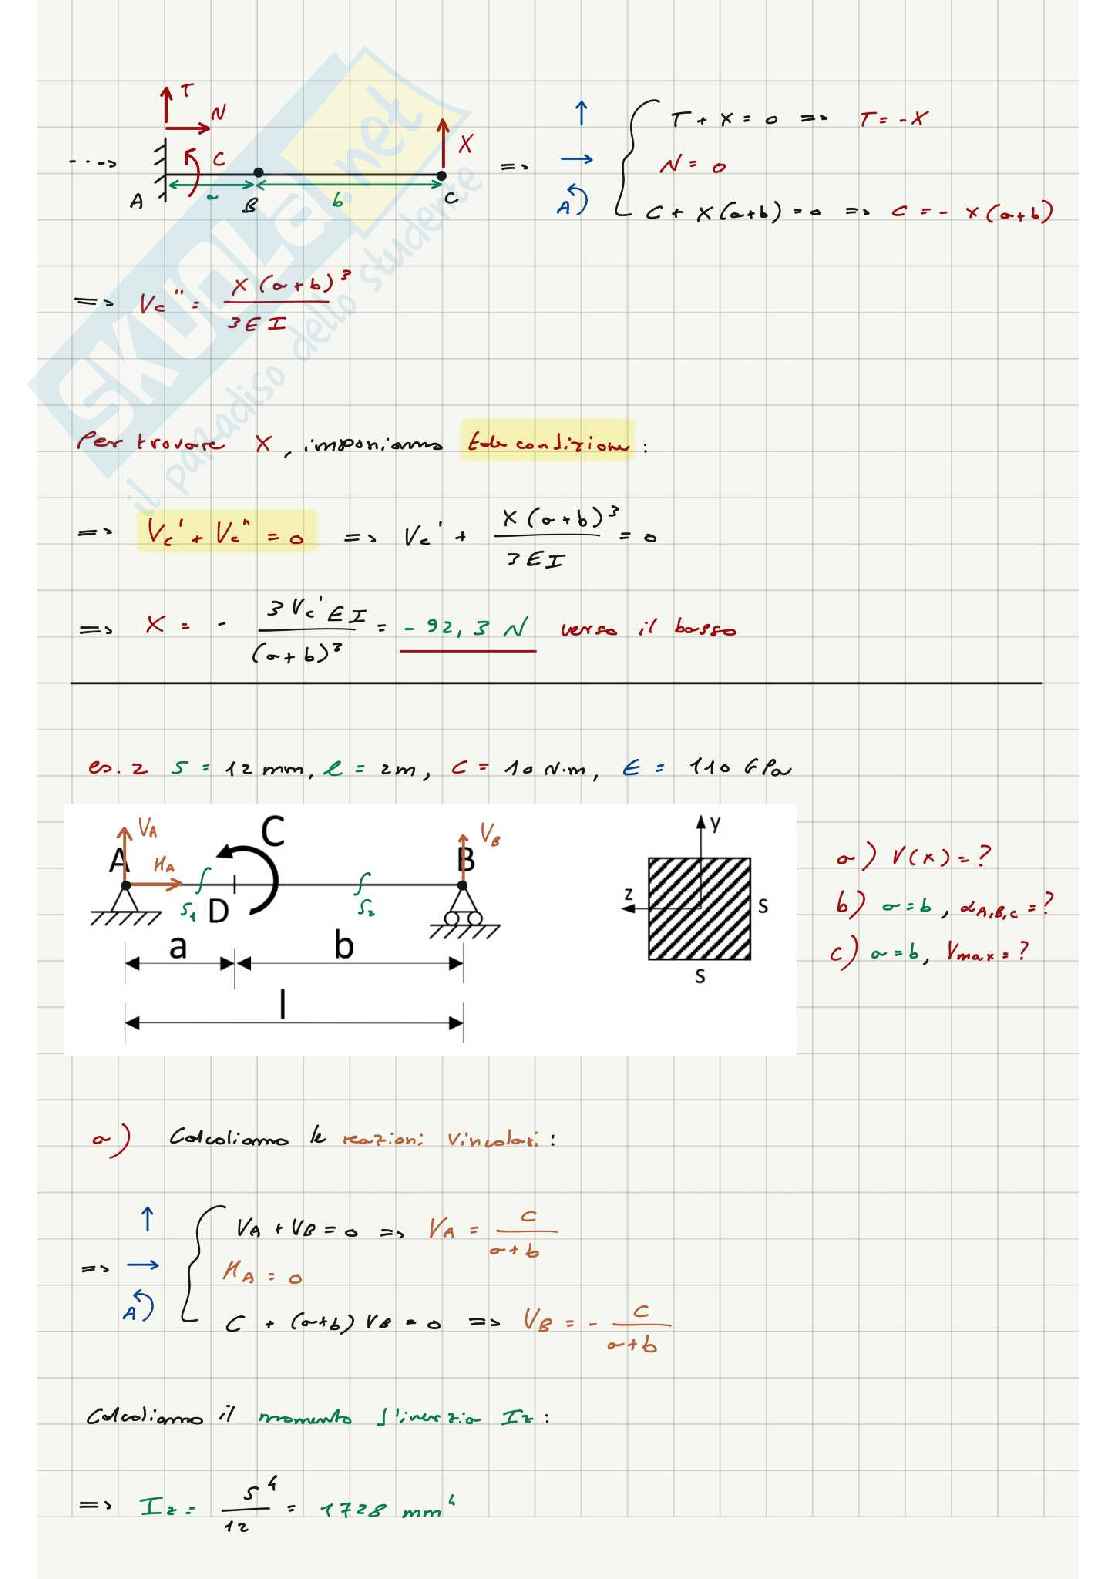 T
N
C
X
A
a
B
b
C
T + X = 0 => T = -X
N = 0
A C + X(a+b) = 0 => C = - X(a+b)
=> Vc'' = X(a+b)³ / 3EI
SKUOLA.net
il paradiso dello studente
Per trovare X, imponiamo tale condizione:
=> Vc' + Vc'' = 0 => Vc' + X(a+b)³ / 3EI = 0
=> X = - 3Vc'EI / (a+b)³ = - 92,3 N verso il basso
es. 2 S = 12 mm, l = 2m, C = 10 N·m, E = 110 GPa
VA
C
VB
A
HA
B
S1
D
S2
a
b
l
y
z
S
S
a) V(x) = ?
b) a = b, αA,B,C = ?
c) a = b, Vmax = ?
a) Calcoliamo le reazioni vincolari:
VA + VB = 0 => VA = C / a+b
=> HA = 0
A C + (a+b) VB = 0 => VB = - C / a+b
Calcoliamo il momento d'inerzia Iz:
=> Iz = S⁴ / 12 = 1728 mm⁴